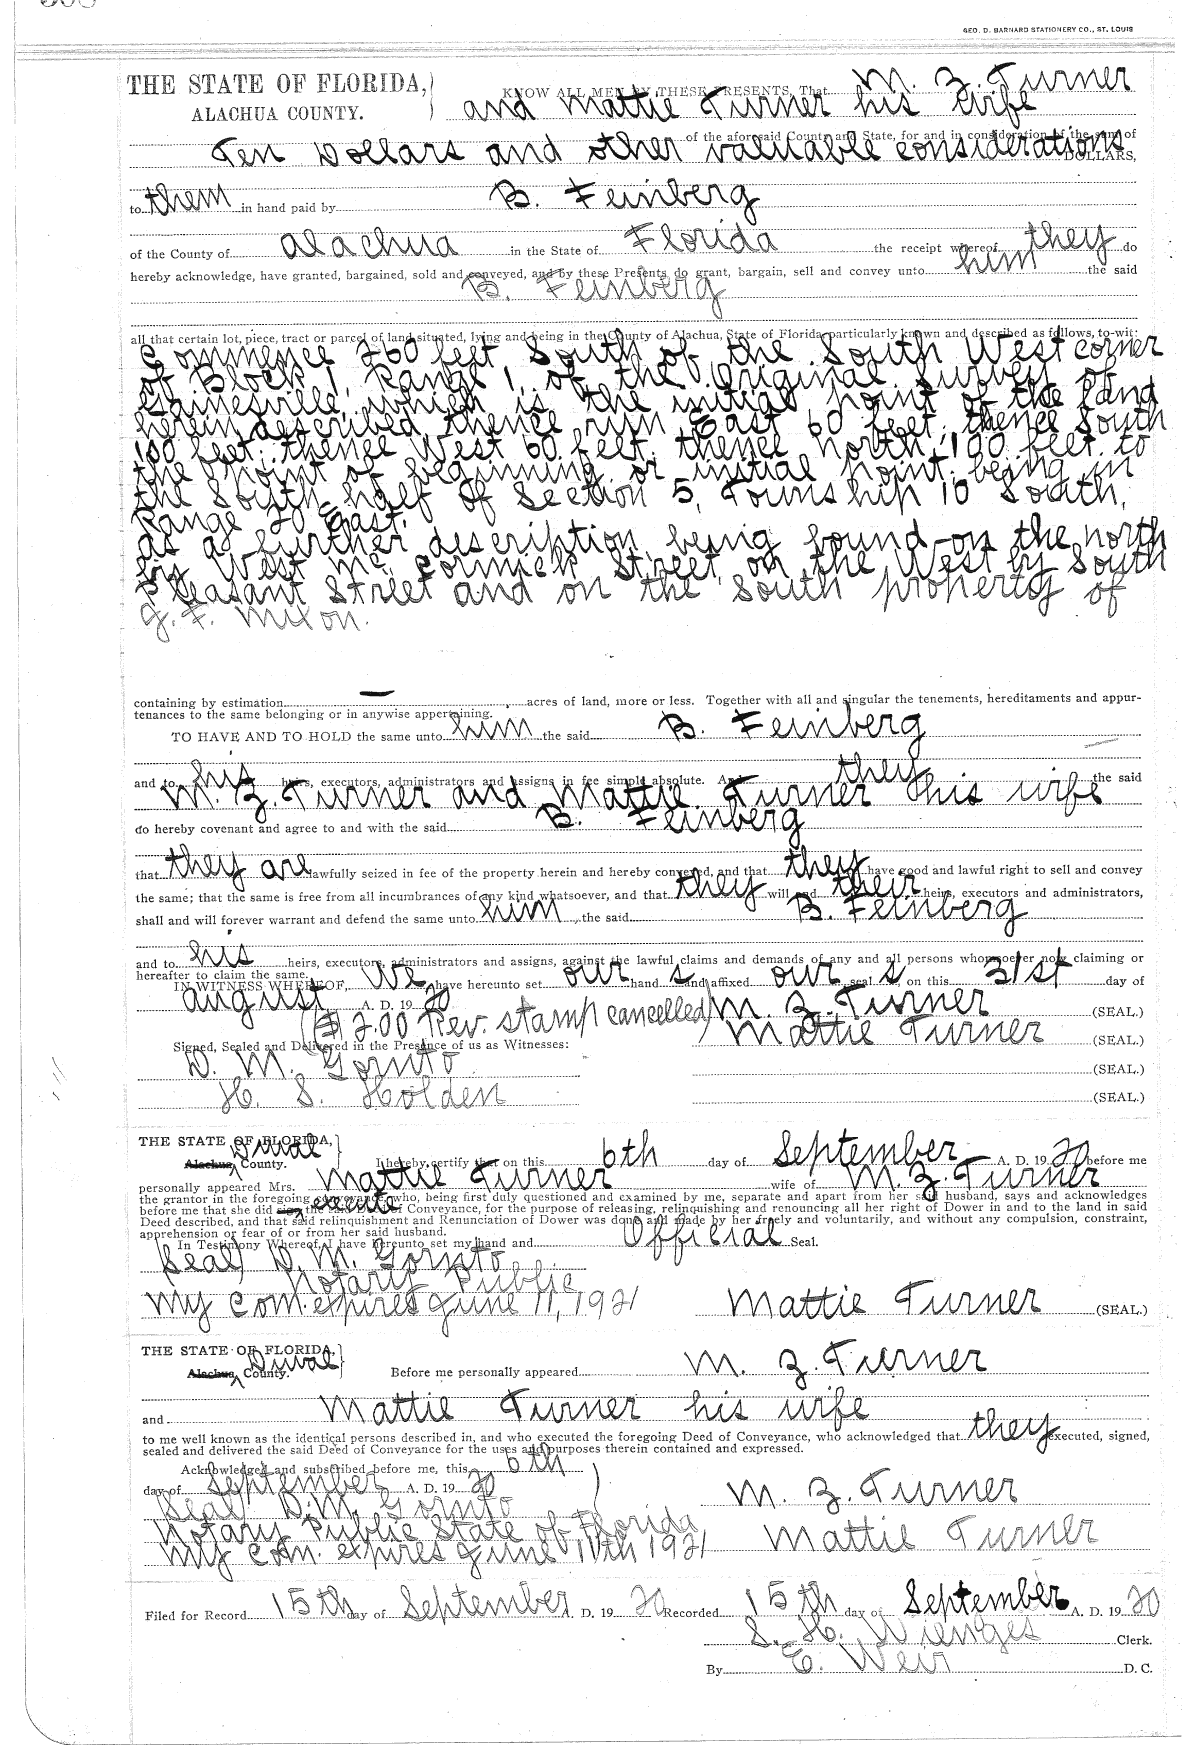 GEO. D. BARNARD STATIONERY CO., ST. LOUIS
THE STATE OF FLORIDA,
ALACHUA COUNTY.
KNOW ALL MEN BY THESE PRESENTS, That M. Z. Turner
and Mattie Turner his wife
of the aforesaid County and State, for and in consideration of the sum of
Ten Dollars and other valuable considerations DOLLARS,
to them in hand paid by B. Feinberg
of the County of Alachua in the State of Florida the receipt whereof they do
hereby acknowledge, have granted, bargained, sold and conveyed, and by these Presents do grant, bargain, sell and convey unto him the said
B. Feinberg
all that certain lot, piece, tract or parcel of land situated, lying and being in the County of Alachua, State of Florida particularly known and described as follows, to-wit:
Commence 760 feet South of the South West corner
of Block 1, Range 1, of the Original Survey of
Gainesville, which is the initial point of the land
herein described thence run East 60 feet: thence South
100 feet: thence West 60 feet: thence north 100 feet to
the point of beginning or initial point: being in
the South half of Section 5, Township 10 South,
Range 20 East.
as a further description being bound on the north
by West Mc Cormick Street, on the West by South
Pleasant Street and on the South property of
G. F. Mixon.
containing by estimation — acres of land, more or less. Together with all and singular the tenements, hereditaments and appur-
tenances to the same belonging or in anywise appertaining.
TO HAVE AND TO HOLD the same unto him the said B. Feinberg
and to his heirs, executors, administrators and assigns in fee simple absolute. And they the said
M. Z. Turner and Mattie Turner his wife
do hereby covenant and agree to and with the said B. Feinberg
that they are lawfully seized in fee of the property herein and hereby conveyed, and that they have good and lawful right to sell and convey
the same; that the same is free from all incumbrances of any kind whatsoever, and that they will and their heirs, executors and administrators,
shall and will forever warrant and defend the same unto him the said B. Feinberg
and to his heirs, executors, administrators and assigns, against the lawful claims and demands of any and all persons whomsoever now claiming or
hereafter to claim the same.
IN WITNESS WHEREOF, We have hereunto set our hand s and affixed our seal s, on this 31st day of
August A. D. 1920
($2.00 Rev. stamp cancelled) M. Z. Turner (SEAL.)
Mattie Turner (SEAL.)
Signed, Sealed and Delivered in the Presence of us as Witnesses:
D. M. Gornto (SEAL.)
H. S. Holden (SEAL.)
THE STATE OF FLORIDA,
Duval
Alachua County. I hereby certify that on this 6th day of September A. D. 1920 before me
personally appeared Mrs. Mattie Turner wife of M. Z. Turner
the grantor in the foregoing conveyance, who, being first duly questioned and examined by me, separate and apart from her said husband, says and acknowledges
before me that she did sign execute the said Deed of Conveyance, for the purpose of releasing, relinquishing and renouncing all her right of Dower in and to the land in said
Deed described, and that said relinquishment and Renunciation of Dower was done and made by her freely and voluntarily, and without any compulsion, constraint,
apprehension or fear of or from her said husband.
In Testimony Whereof, I have hereunto set my hand and Official Seal.
Seal) D. M. Gornto
Notary Public
My Com. expires June 11, 1921 Mattie Turner (SEAL.)
THE STATE OF FLORIDA,
Duval
Alachua County. Before me personally appeared M. Z. Turner
and Mattie Turner his wife
to me well known as the identical persons described in, and who executed the foregoing Deed of Conveyance, who acknowledged that they executed, signed,
sealed and delivered the said Deed of Conveyance for the uses and purposes therein contained and expressed.
Acknowledged and subscribed before me, this 6th
day of September A. D. 1920
Seal) D. M. Gornto M. Z. Turner
Notary Public State of Florida
My Com. expires June 11th 1921 Mattie Turner
Filed for Record 15th day of September A. D. 1920 Recorded 15th day of September A. D. 1920
S. H. Wienges Clerk.
By E. Weir D. C.